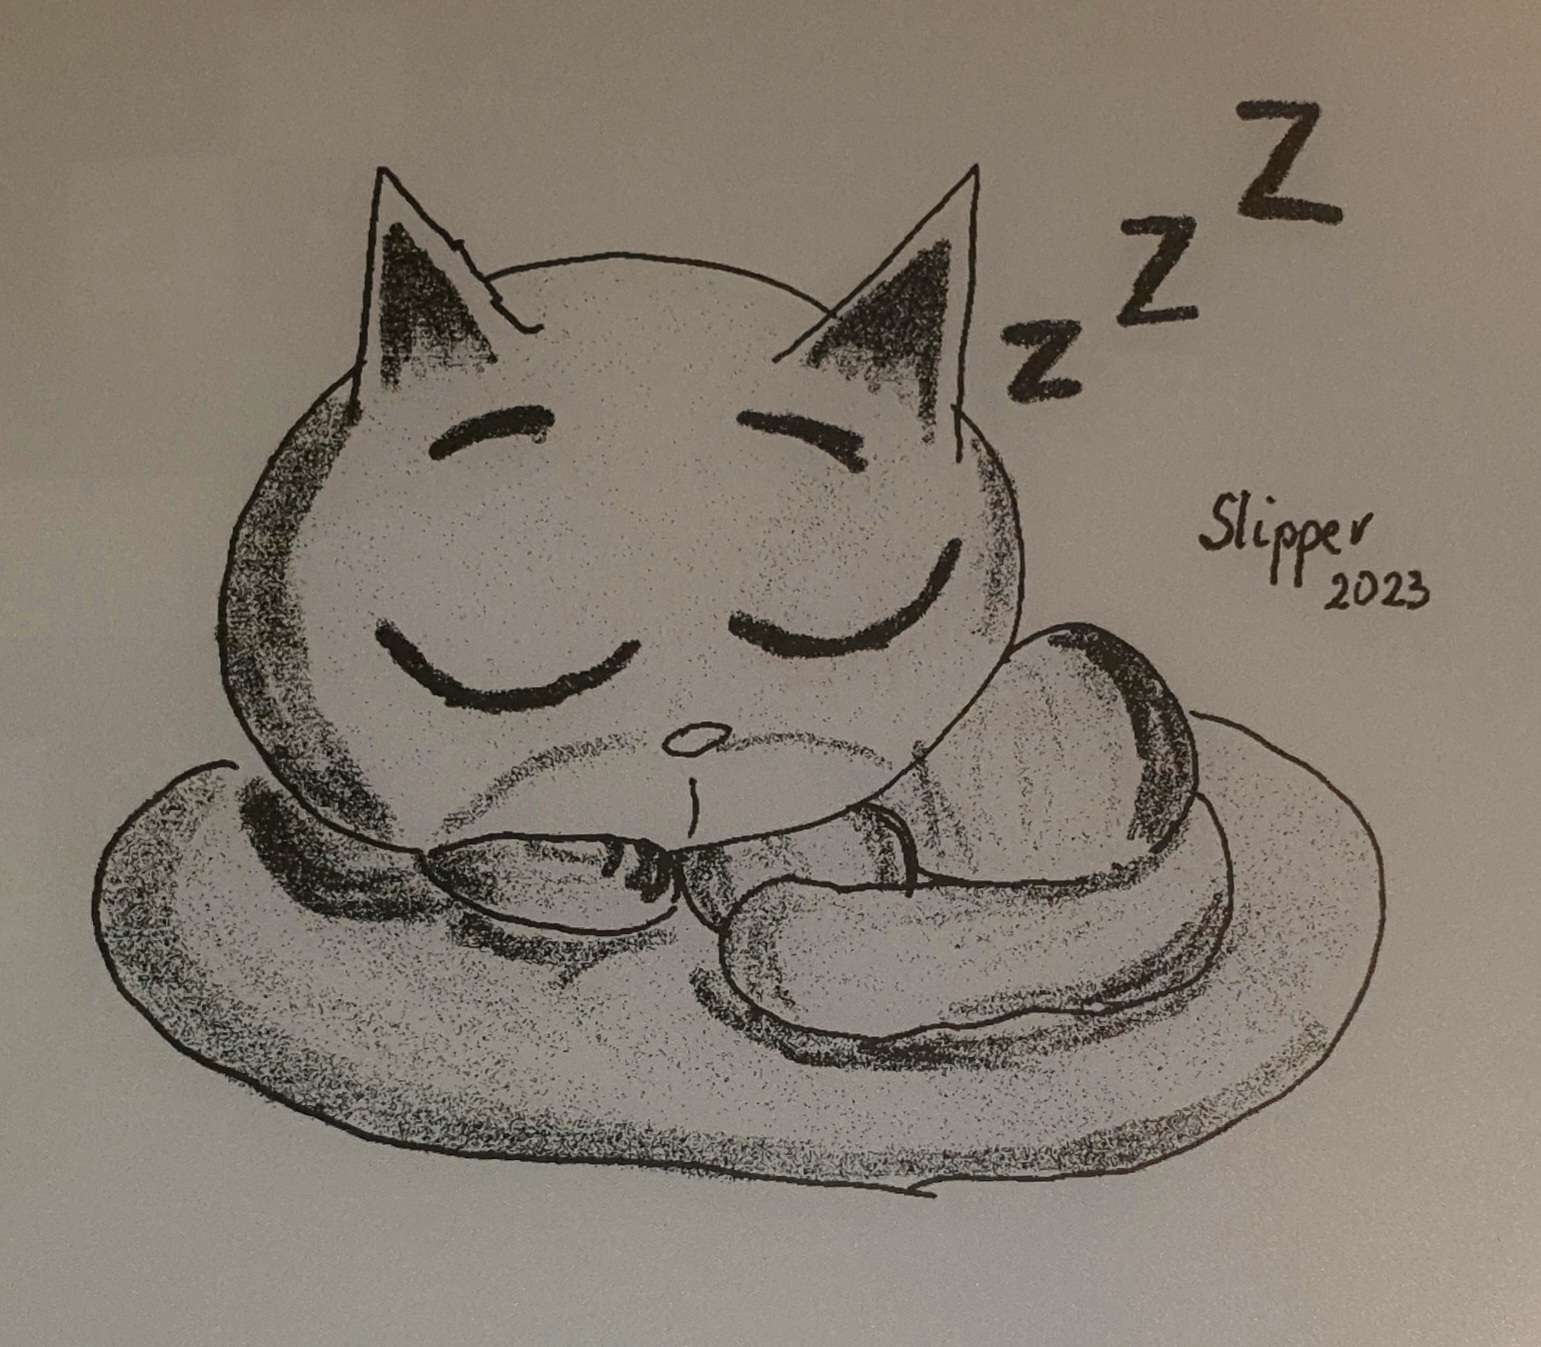 z z Z
Slipper
2023